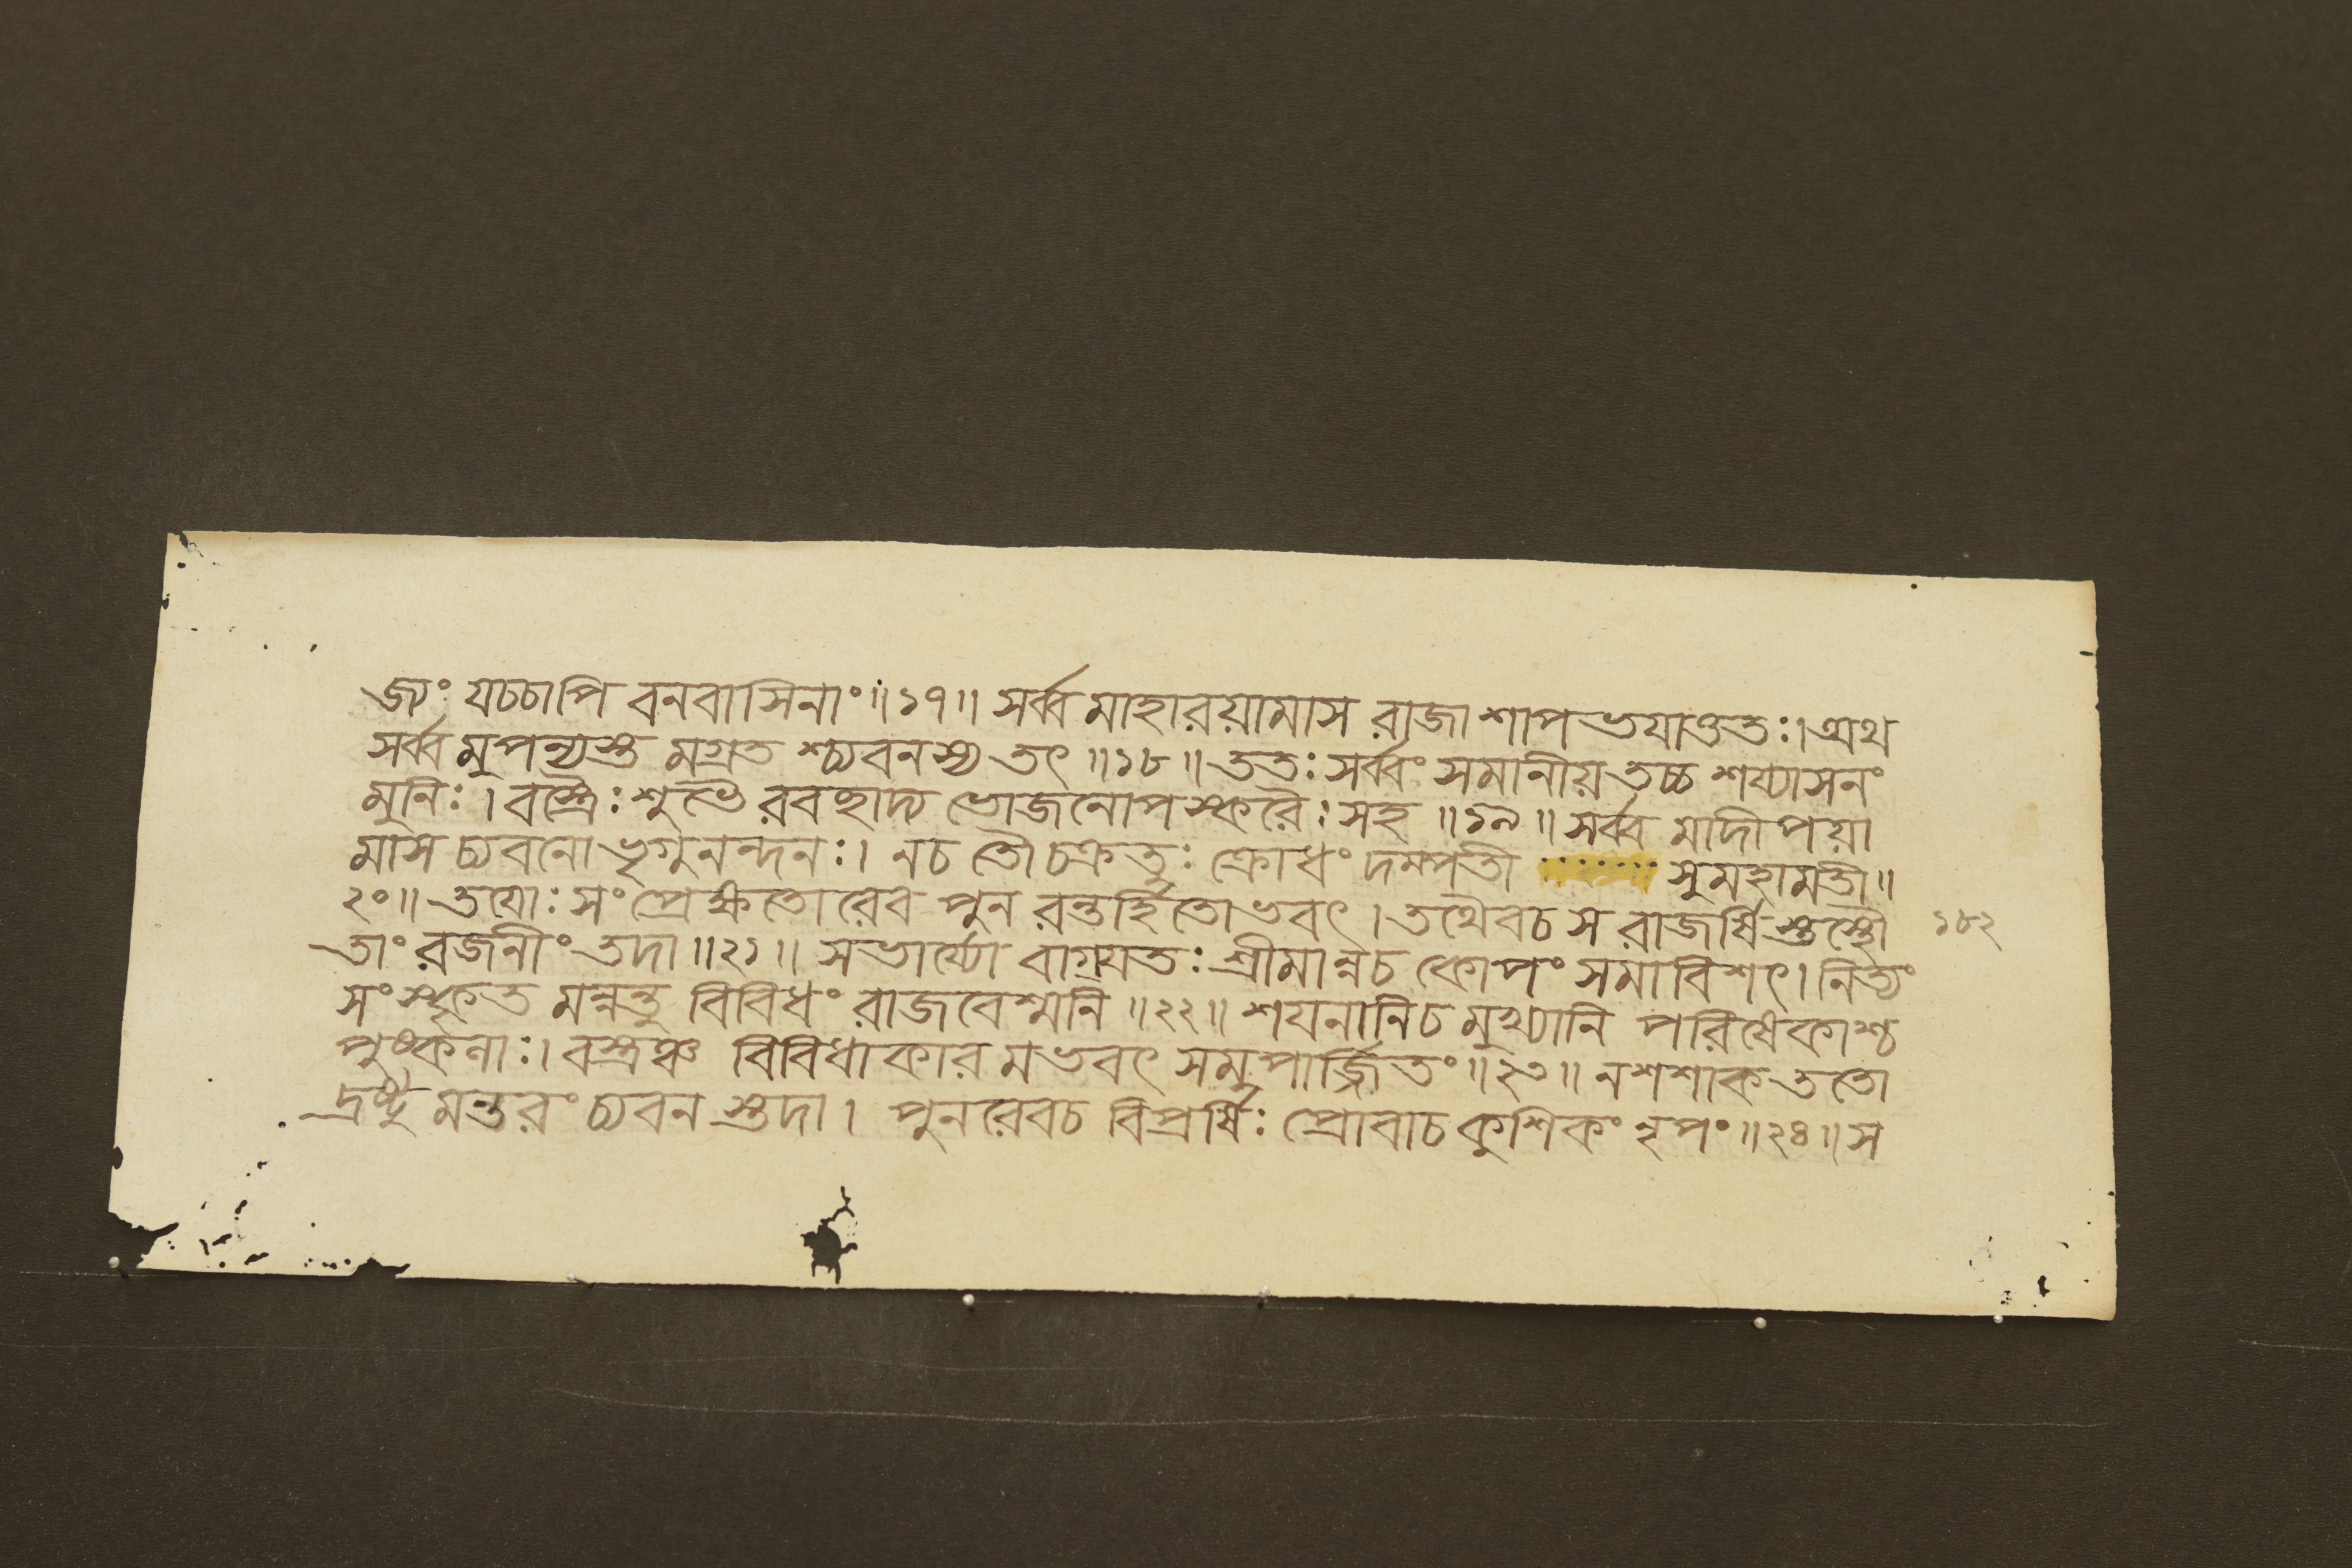 জ্যং যচ্চাপি বনবাসিনাং॥১৭॥ সর্ব্ব মাহারয়ামাস রাজা শাপ ভযাত্তত:। অথ
সর্ব্ব মুপন্যস্ত মগ্রত শ্চ্যবনস্য তৎ ॥১৮॥ ততঃ সর্ব্বং সমানীয় তচ্চ শয্যাসনং
মুনিঃ। বস্ত্রৈঃ শুভৈ রবছাদ্য ভোজনোপস্করৈঃ সহ ॥১৯॥ সর্ব্ব মাদীপয়া
মাস চ্যবনো ভৃগুনন্দনঃ। নচ তৌ চক্রতুঃ ক্রোধং দম্পতী সুমহামতী॥
২০॥ তযোঃ সংপ্রেক্ষতোরেব পুন রন্তর্হিতোভবৎ। তথৈবচ স রাজর্ষি স্তস্থৌ ১৮২
তাং রজনীং তদা ॥২১॥ সভার্য্যো বাগ্যতঃ শ্রীমান্নচ কোপং সমাবিশৎ। নিত্যং
সংস্কৃত মন্নন্তু বিবিধং রাজবেশ্মনি ॥২২॥ শযনানিচ মুখ্যানি পরিষেকাশ্চ
পুষ্কলাঃ। বস্ত্রঞ্চ বিবিধাকার মভবৎ সমুপার্জ্জিতং ॥২৩॥ নশশাক ততো
দ্রষ্টু মন্তরং চ্যবন স্তদা। পুনরেবচ বিপ্রর্ষিঃ প্রোবাচ কুশিকং নৃপং ॥২৪॥ স